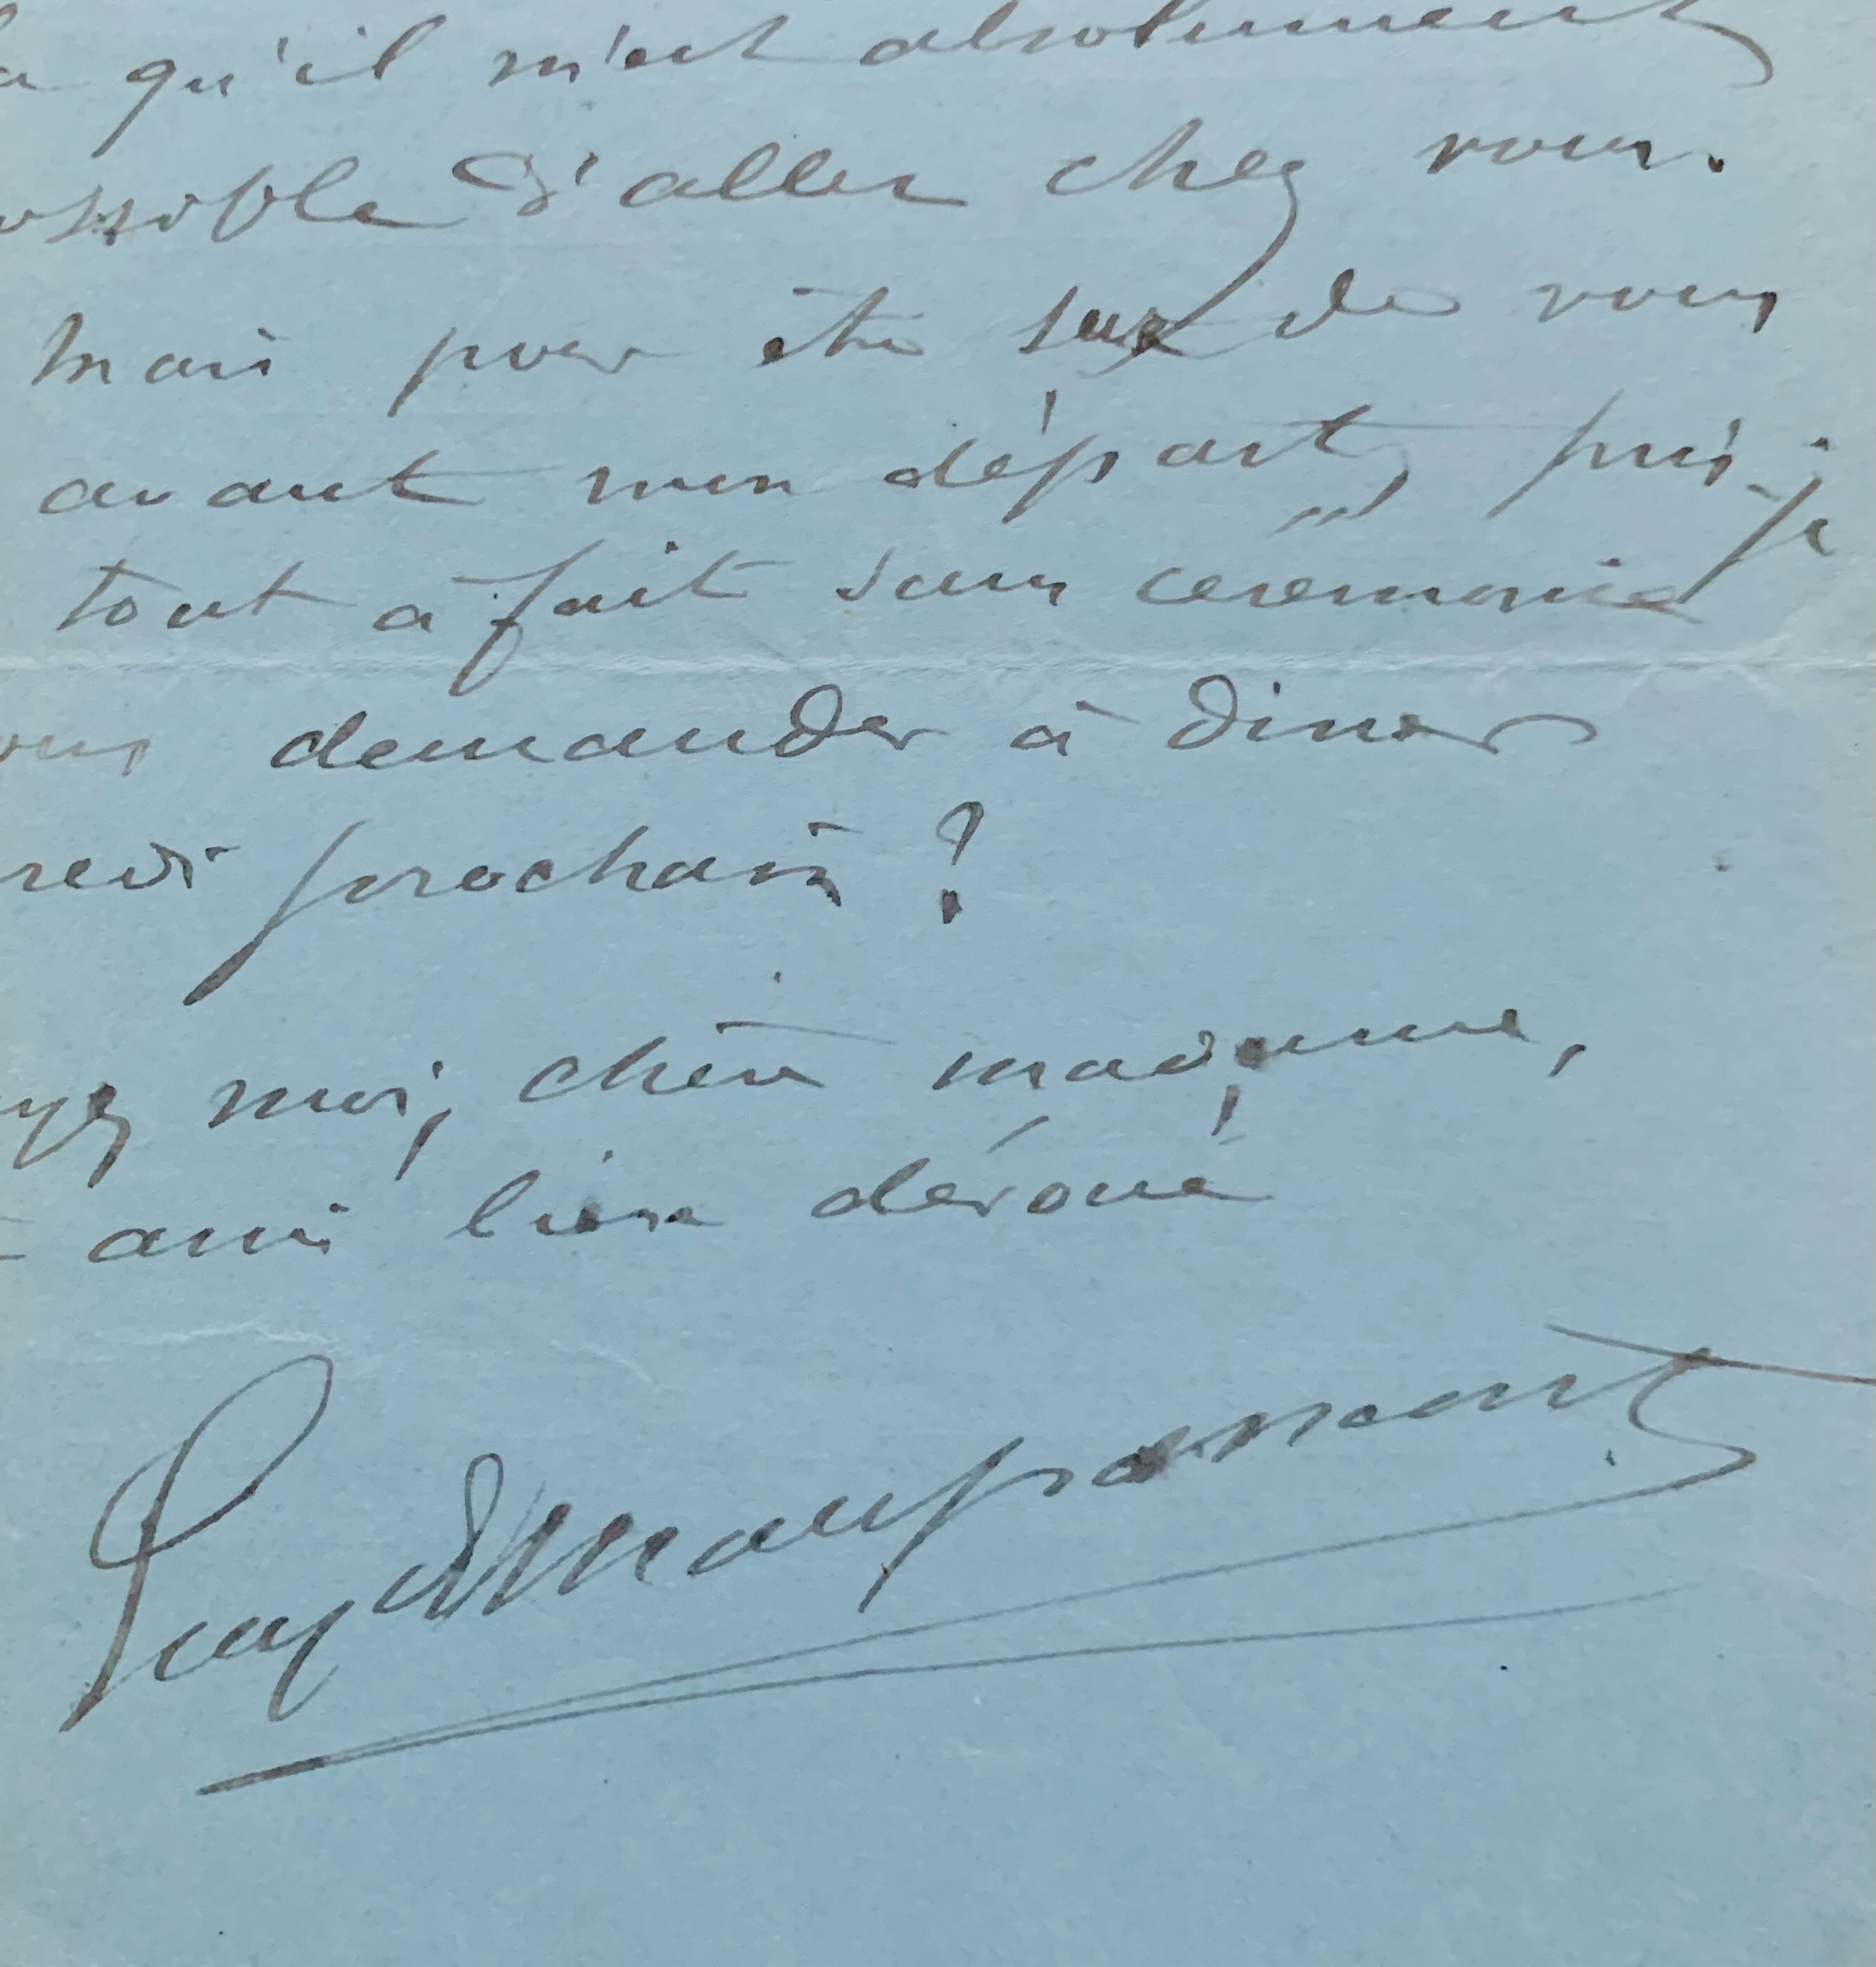 qu'il m'est absolument
ossible d'aller chez vous.
Mais pour être sur de vous
avant mon départ, puis-je
tout à fait sans cérémonie
ous demander à diner
redi prochain ?
yez moi, chère madame,
ami bien dévoué
Guy de Maupassant